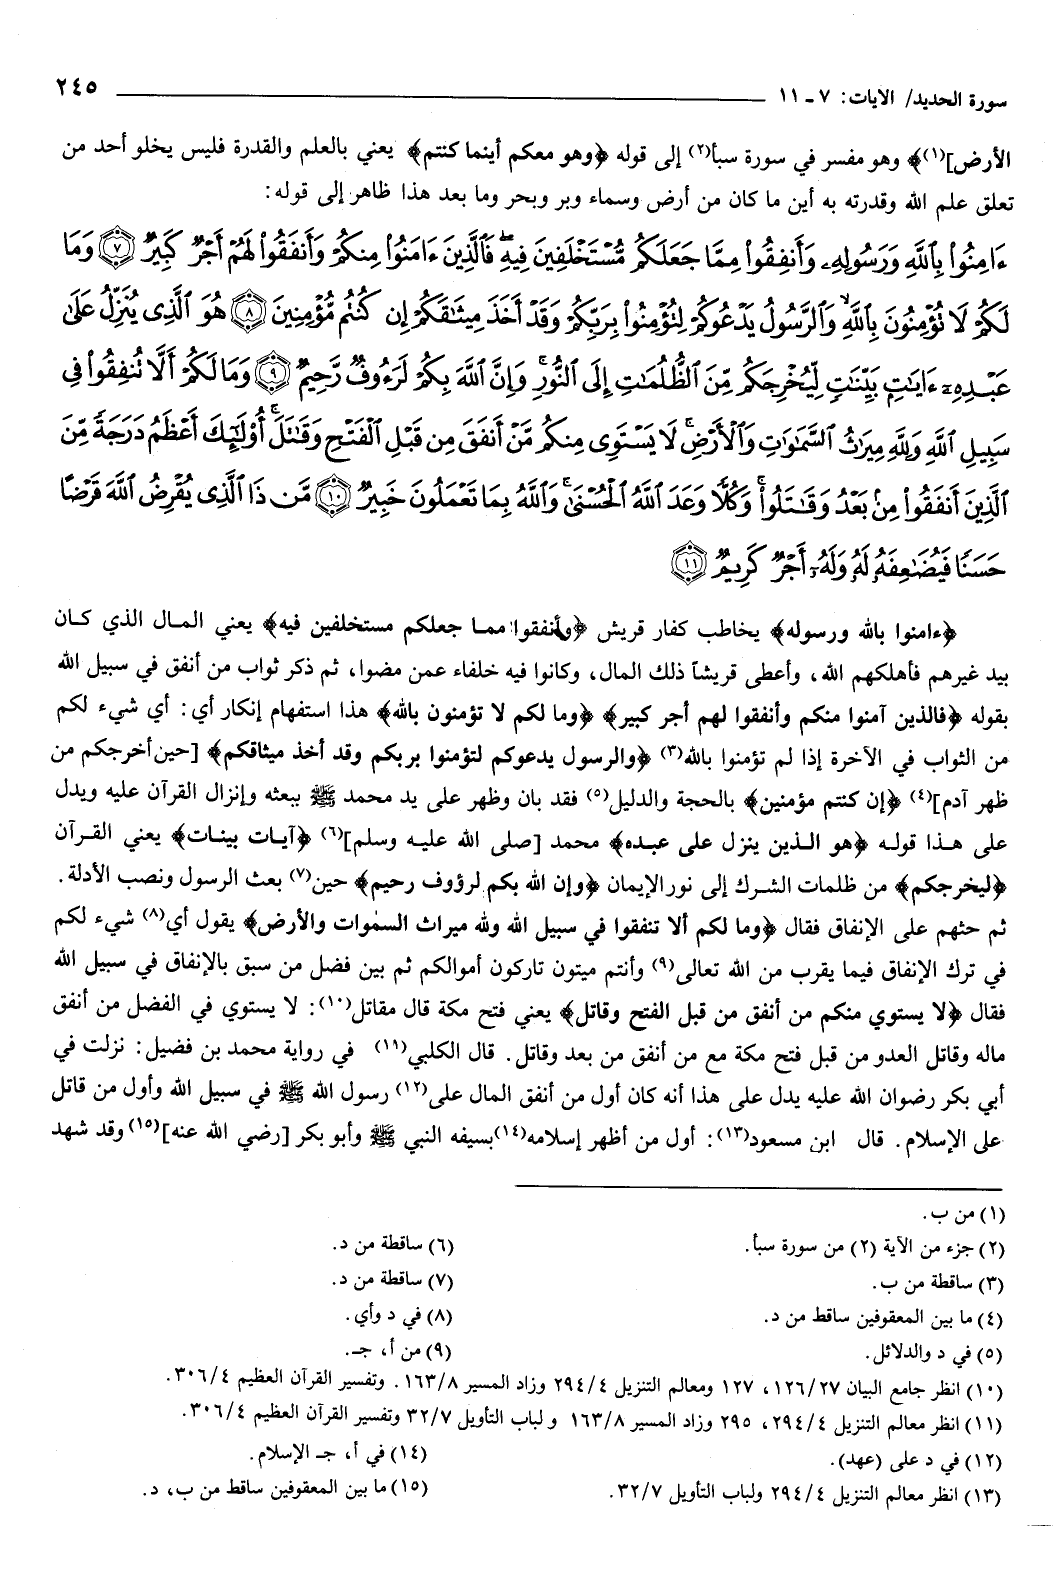 سورة الحديد/ الايات: ٧ - ١١ ٢٤٥
الأرض](١)﴾ وهو مفسر في سورة سبأ(٢) إلى قوله ﴿وهو معكم أينما كنتم﴾ يعني بالعلم والقدرة فليس يخلو أحد من
تعلق علم الله وقدرته به أين ما كان من أرض وسماء وبر وبحر وما بعد هذا ظاهر إلى قوله:
ءَامِنُوا۟ بِٱللَّهِ وَرَسُولِهِۦ وَأَنفِقُوا۟ مِمَّا جَعَلَكُم مُّسْتَخْلَفِينَ فِيهِ ۖ فَٱلَّذِينَ ءَامَنُوا۟ مِنكُمْ وَأَنفَقُوا۟ لَهُمْ أَجْرٌ كَبِيرٌ ﴿٧﴾ وَمَا
لَكُمْ لَا تُؤْمِنُونَ بِٱللَّهِ ۙ وَٱلرَّسُولُ يَدْعُوكُمْ لِتُؤْمِنُوا۟ بِرَبِّكُمْ وَقَدْ أَخَذَ مِيثَٰقَكُمْ إِن كُنتُم مُّؤْمِنِينَ ﴿٨﴾ هُوَ ٱلَّذِى يُنَزِّلُ عَلَىٰ
عَبْدِهِۦٓ ءَايَٰتٍۭ بَيِّنَٰتٍ لِّيُخْرِجَكُم مِّنَ ٱلظُّلُمَٰتِ إِلَى ٱلنُّورِ ۚ وَإِنَّ ٱللَّهَ بِكُمْ لَرَءُوفٌ رَّحِيمٌ ﴿٩﴾ وَمَا لَكُمْ أَلَّا تُنفِقُوا۟ فِى
سَبِيلِ ٱللَّهِ وَلِلَّهِ مِيرَٰثُ ٱلسَّمَٰوَٰتِ وَٱلْأَرْضِ ۚ لَا يَسْتَوِى مِنكُم مَّنْ أَنفَقَ مِن قَبْلِ ٱلْفَتْحِ وَقَٰتَلَ ۚ أُو۟لَٰٓئِكَ أَعْظَمُ دَرَجَةً مِّنَ
ٱلَّذِينَ أَنفَقُوا۟ مِنۢ بَعْدُ وَقَٰتَلُوا۟ ۚ وَكُلًّا وَعَدَ ٱللَّهُ ٱلْحُسْنَىٰ ۚ وَٱللَّهُ بِمَا تَعْمَلُونَ خَبِيرٌ ﴿١٠﴾ مَّن ذَا ٱلَّذِى يُقْرِضُ ٱللَّهَ قَرْضًا
حَسَنًا فَيُضَٰعِفَهُۥ لَهُۥ وَلَهُۥٓ أَجْرٌ كَرِيمٌ ﴿١١﴾
﴿ءامنوا بالله ورسوله﴾ يخاطب كفار قريش ﴿وأنفقوا مما جعلكم مستخلفين فيه﴾ يعني المال الذي كان
بيد غيرهم فأهلكهم الله، وأعطى قريشاً ذلك المال، وكانوا فيه خلفاء عمن مضوا، ثم ذكر ثواب من أنفق في سبيل الله
بقوله ﴿فالذين آمنوا منكم وأنفقوا لهم أجر كبير﴾ ﴿وما لكم لا تؤمنون بالله﴾ هذا استفهام إنكار أي: أي شيء لكم
من الثواب في الآخرة إذا لم تؤمنوا بالله(٣) ﴿والرسول يدعوكم لتؤمنوا بربكم وقد أخذ ميثاقكم﴾ [حين أخرجكم من
ظهر آدم](٤) ﴿إن كنتم مؤمنين﴾ بالحجة والدليل(٥) فقد بان وظهر على يد محمد ﷺ ببعثه وإنزال القرآن عليه ويدل
على هذا قوله ﴿هو الذين ينزل على عبده﴾ محمد [صلى الله عليه وسلم](٦) ﴿آيات بينات﴾ يعني القرآن
﴿ليخرجكم﴾ من ظلمات الشرك إلى نور الإيمان ﴿وإن الله بكم لرؤوف رحيم﴾ حين(٧) بعث الرسول ونصب الأدلة.
ثم حثهم على الإنفاق فقال ﴿وما لكم ألا تنفقوا في سبيل الله ولله ميراث السمٰوات والأرض﴾ يقول أي(٨) شيء لكم
في ترك الإنفاق فيما يقرب من الله تعالى(٩) وأنتم ميتون تاركون أموالكم ثم بين فضل من سبق بالإنفاق في سبيل الله
فقال ﴿لا يستوي منكم من أنفق من قبل الفتح وقاتل﴾ يعني فتح مكة قال مقاتل(١٠): لا يستوي في الفضل من أنفق
ماله وقاتل العدو من قبل فتح مكة مع من أنفق من بعد وقاتل. قال الكلبي(١١) في رواية محمد بن فضيل: نزلت في
أبي بكر رضوان الله عليه يدل على هذا أنه كان أول من أنفق المال على(١٢) رسول الله ﷺ في سبيل الله وأول من قاتل
على الإسلام. قال ابن مسعود(١٣): أول من أظهر إسلامه(١٤) بسيفه النبي ﷺ وأبو بكر [رضي الله عنه](١٥) وقد شهد
(١) من ب.
(٢) جزء من الآية (٢) من سورة سبأ.
(٣) ساقطة من ب.
(٤) ما بين المعقوفين ساقط من د.
(٥) في د والدلائل.
(٦) ساقطة من د.
(٧) ساقطة من د.
(٨) في د وأي.
(٩) من أ، جـ.
(١٠) انظر جامع البيان ١٢٦/٢٧، ١٢٧ ومعالم التنزيل ٢٩٤/٤ وزاد المسير ١٦٣/٨. وتفسير القرآن العظيم ٣٠٦/٤.
(١١) انظر معالم التنزيل ٢٩٤/٤، ٢٩٥ وزاد المسير ١٦٣/٨ ولباب التأويل ٣٢/٧ وتفسير القرآن العظيم ٣٠٦/٤.
(١٢) في د على (عهد).
(١٣) انظر معالم التنزيل ٢٩٤/٤ ولباب التأويل ٣٢/٧.
(١٤) في أ، جـ الإسلام.
(١٥) ما بين المعقوفين ساقط من ب، د.